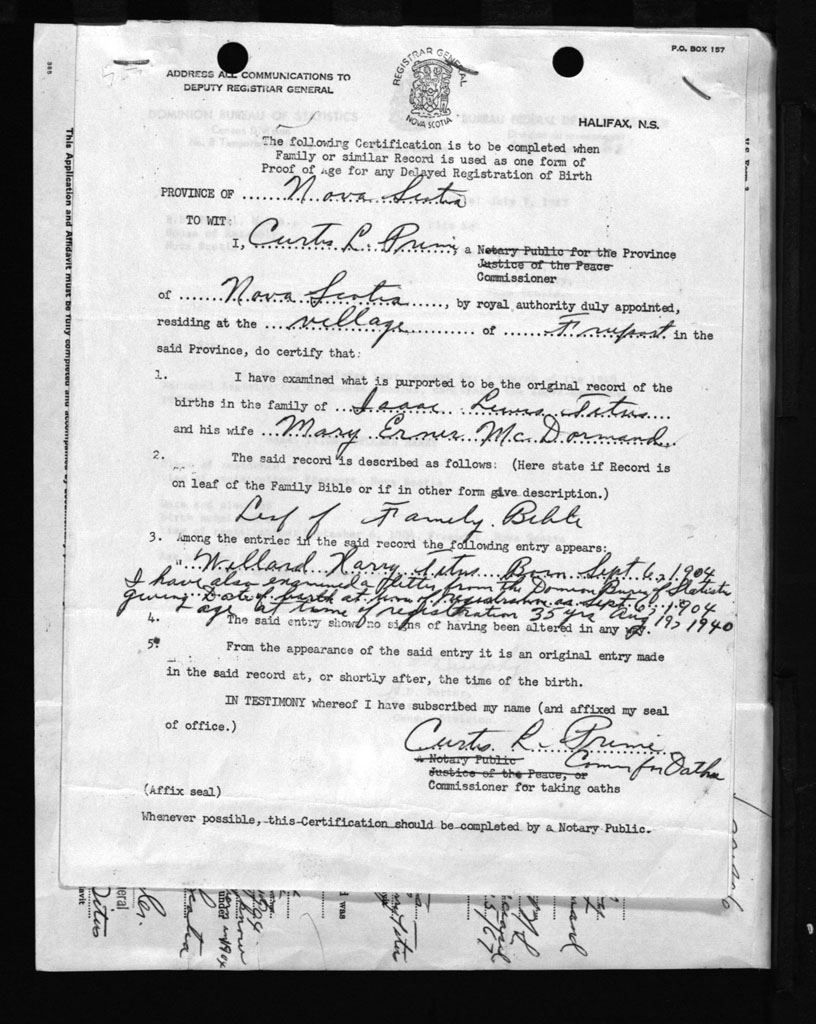 P.O. BOX 157
REGISTRAR GENERAL
NOVA SCOTIA
ADDRESS ALL COMMUNICATIONS TO
DEPUTY REGISTRAR GENERAL
HALIFAX, N.S.
The following Certification is to be completed when
Family or similar Record is used as one form of
Proof of Age for any Delayed Registration of Birth
PROVINCE OF Nova Scotia
TO WIT:
I, Curtis L. Prime, a Notary Public for the Province
Justice of the Peace
Commissioner
of Nova Scotia, by royal authority duly appointed,
residing at the village of Freeport in the
said Province, do certify that:
1. I have examined what is purported to be the original record of the
births in the family of Isaac Lewis Titus
and his wife Mary Mc Dormand
2. The said record is described as follows: (Here state if Record is
on leaf of the Family Bible or if in other form give description.)
Leaf of Family Bible
3. Among the entries in the said record the following entry appears:
"Willard Harry Titus Born Sept 6, 1904
I have also examined a letter from the Bureau of Statistics
giving Date of birth at time of registration as Sept. 6, 1904
& age at time of registration 35 yrs Aug 19, 1940
4. The said entry shows no signs of having been altered in any way.
5. From the appearance of the said entry it is an original entry made
in the said record at, or shortly after, the time of the birth.
IN TESTIMONY whereof I have subscribed my name (and affixed my seal
of office.)
Curtis L. Prime
A Notary Public
Justice of the Peace, or
Commissioner for taking oaths
(Affix seal)
Whenever possible, this Certification should be completed by a Notary Public.
This Application and Affidavit must be fully completed and accompanied by